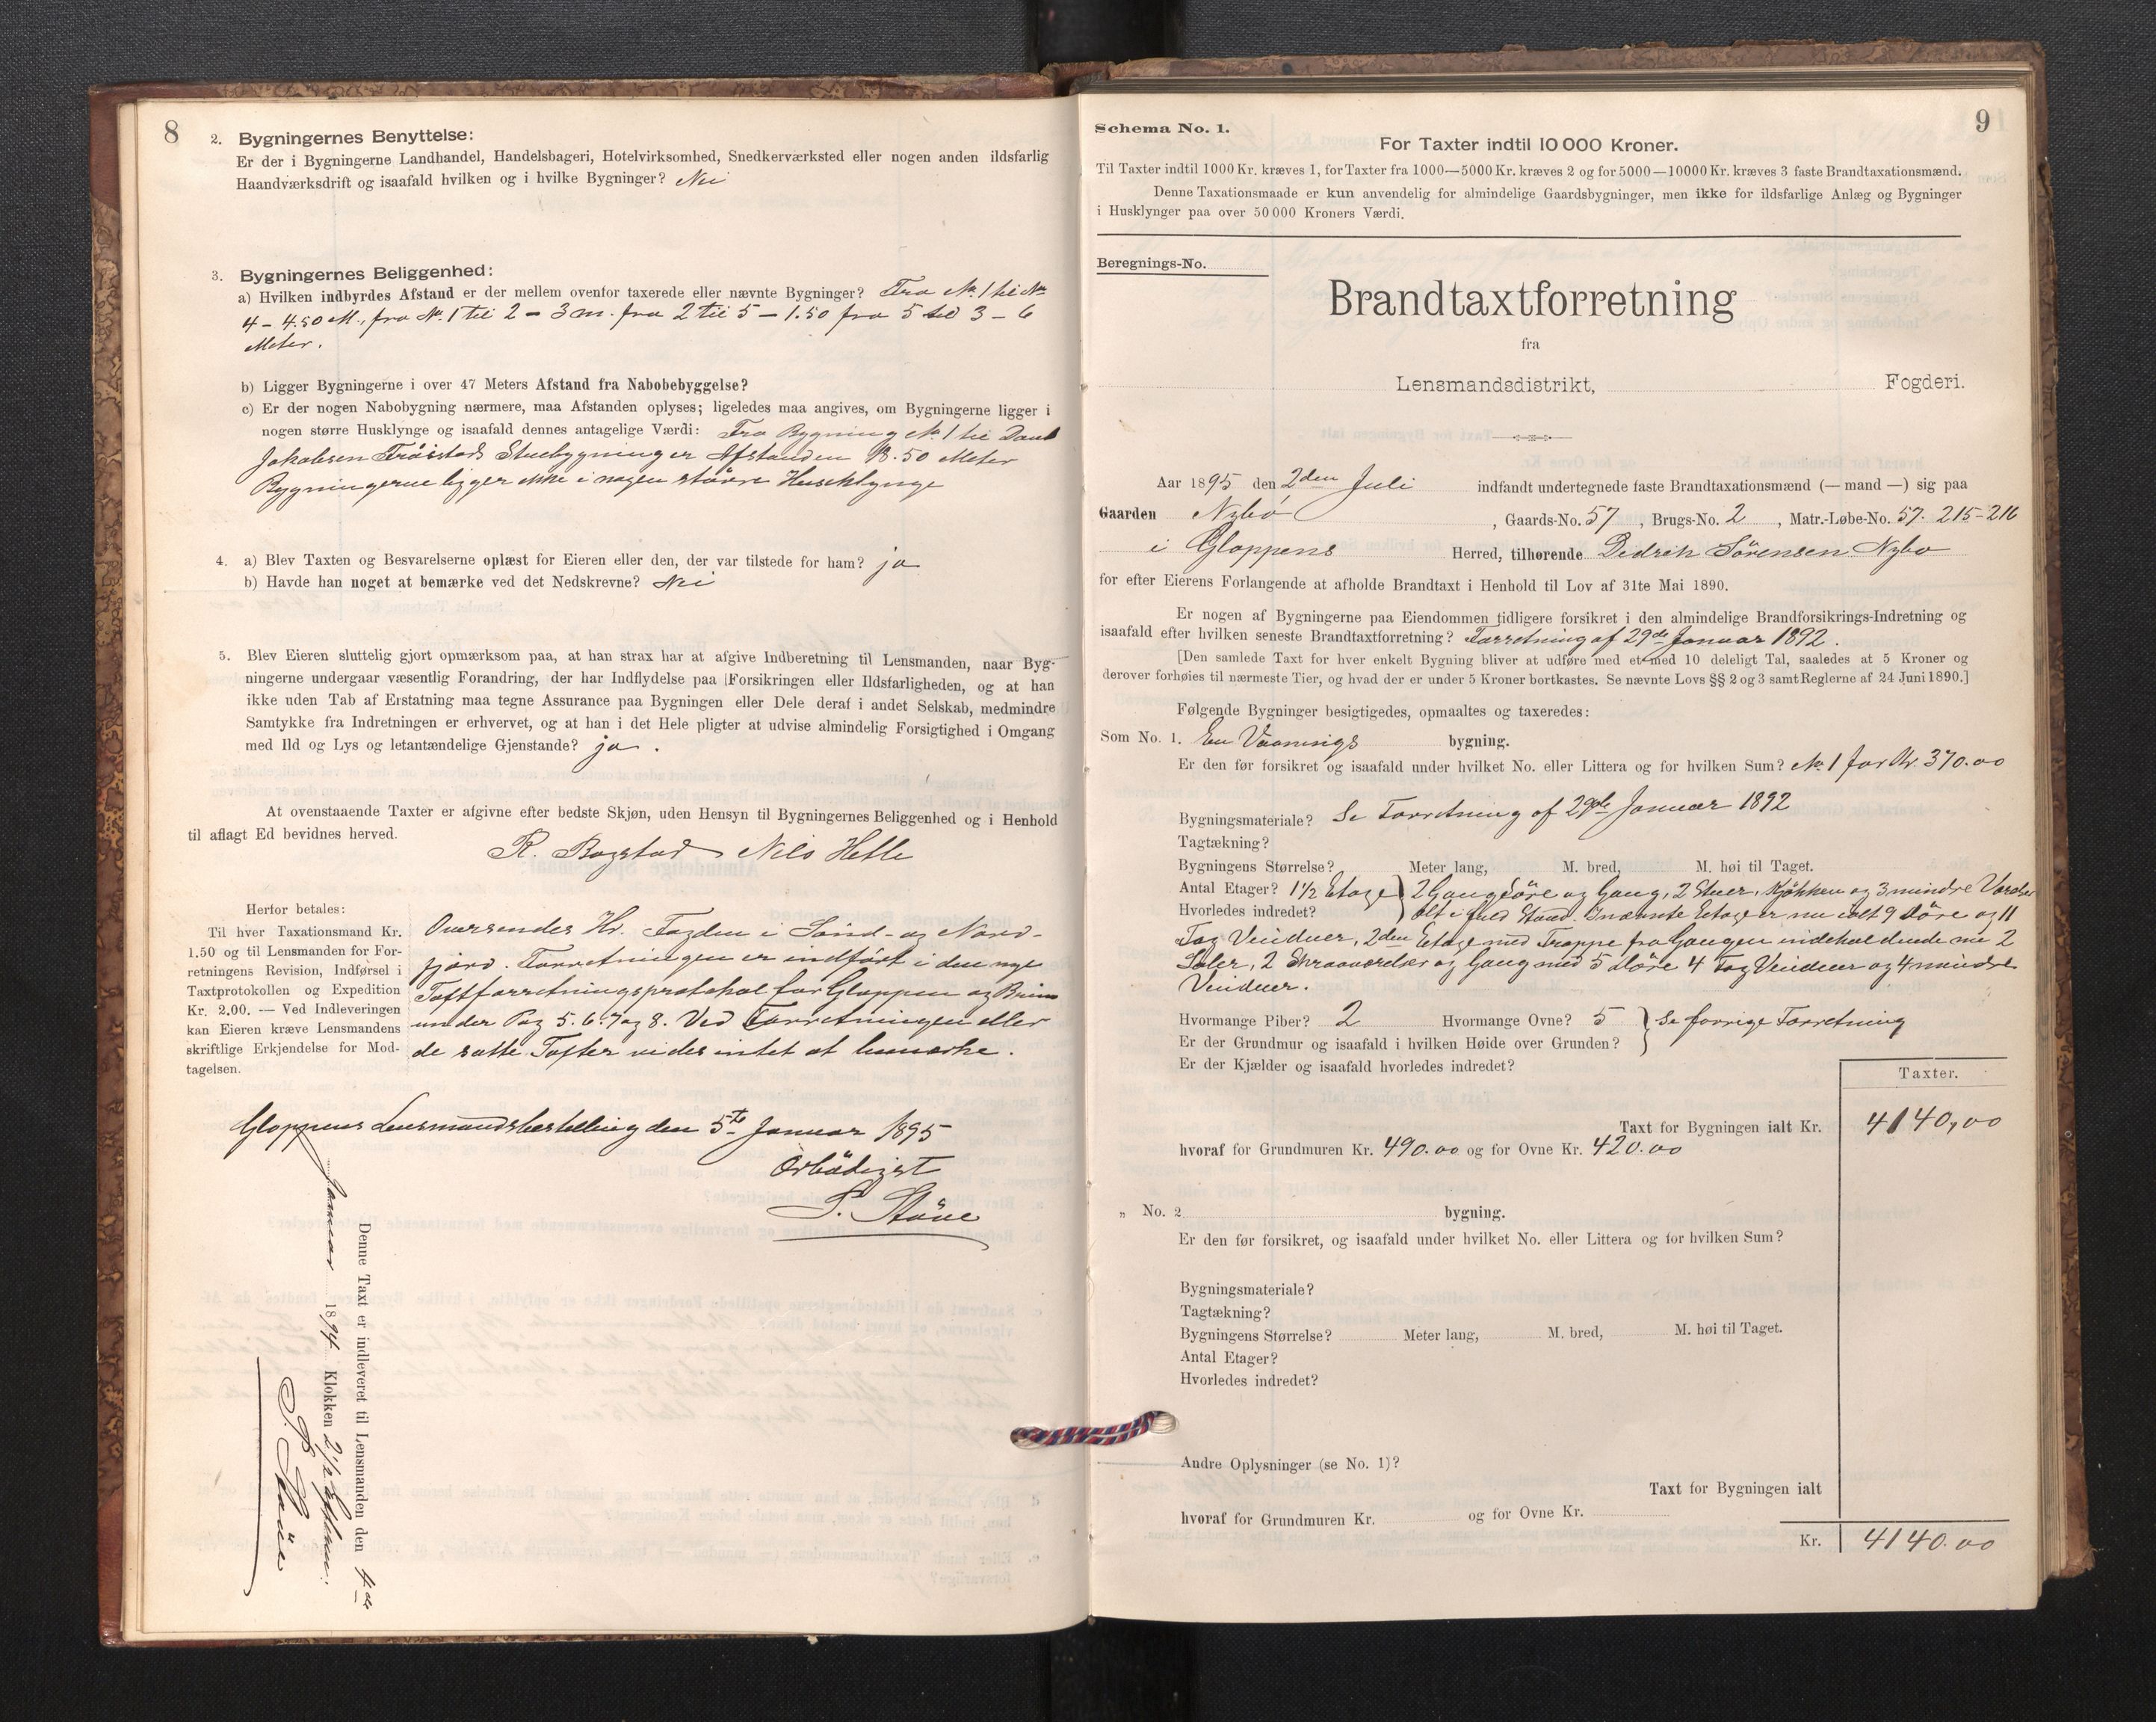 8
2. Bygningernes Benyttelse:
Er der i Bygningerne Landhandel, Handelsbageri, Hotelvirksomhed, Snedkerværksted eller nogen anden ildsfarlig
Haandværksdrift og isaafald hvilken og i hvilke Bygninger? Nei
3. Bygningernes Beliggenhed:
a) Hvilken indbyrdes Afstand er der mellem ovenfor taxerede eller nævnte Bygninger? Fra No. 1 til No.
4 - 4.50 M., fra No. 1 til 2 - 3 m. fra 2 til 5 - 1.50 fra 5 til 3 - 6
Meter.
b) Ligger Bygningerne i over 47 Meters Afstand fra Nabobebyggelse?
c) Er der nogen Nabobygning nærmere, maa Afstanden oplyses; ligeledes maa angives, om Bygningerne ligger i
nogen større Husklynge og isaafald dennes antagelige Værdi: Fra Bygning No. 1 til
Jakobsen Stuebygning er Afstanden 18.50 Meter
Bygningerne ligger ikke i nogen større Husklynge
4. a) Blev Taxten og Besvarelserne oplæst for Eieren eller den, der var tilstede for ham? ja
b) Havde han noget at bemærke ved det Nedskrevne? Nei
5. Blev Eieren sluttelig gjort opmærksom paa, at han strax har at afgive Indberetning til Lensmanden, naar Byg-
ningerne undergaar væsentlig Forandring, der har Indflydelse paa Forsikringen eller Ildsfarligheden, og at han
ikke uden Tab af Erstatning maa tegne Assurance paa Bygningen eller Dele deraf i andet Selskab, medmindre
Samtykke fra Indretningen er erhvervet, og at han i det Hele pligter at udvise almindelig Forsigtighed i Omgang
med Ild og Lys og letantændelige Gjenstande? ja.
At ovenstaaende Taxter er afgivne efter bedste Skjøn, uden Hensyn til Bygningernes Beliggenhed og i Henhold
til aflagt Ed bevidnes herved.
R. Bogstad Nils Hetle
Herfor betales:
Til hver Taxationsmand Kr.
1.50 og til Lensmanden for For-
retningens Revision, Indførsel i
Taxtprotokollen og Expedition
Kr. 2.00. — Ved Indleveringen
kan Eieren kræve Lensmandens
skriftlige Erkjendelse for Mod-
tagelsen.
Oversendes Hr. Fogden i Sønd- og Nord-
fjord. Forretningen er indført i den nye
Taxtforretningsprotokol for Gloppen og Breim
under Pag 5. 6. 7 og 8. Ved Forretningen eller
de satte Taxter vides intet at bemærke.
Gloppens Lensmandsbestilling den 5te Januar 1895
Ærbødigst
S. Støve
Denne Taxt er indleveret til Lensmanden den 4de
Januar 1894 Klokken 2 1/2 Eftem.
S. Støve
9
Schema No. 1.
For Taxter indtil 10 000 Kroner.
Til Taxter indtil 1000 Kr. kræves 1, for Taxter fra 1000—5000 Kr. kræves 2 og for 5000—10000 Kr. kræves 3 faste Brandtaxationsmænd.
Denne Taxationsmaade er kun anvendelig for almindelige Gaardsbygninger, men ikke for ildsfarlige Anlæg og Bygninger
i Husklynger paa over 50 000 Kroners Værdi.
Beregnings-No.
Brandtaxtforretning
fra
Lensmandsdistrikt, Fogderi.
Aar 1895 den 2den Juli indfandt undertegnede faste Brandtaxationsmænd (— mand —) sig paa
Gaarden Nybø, Gaards-No. 57, Brugs-No. 2, Matr.-Løbe-No. 57. 215-216
i Gloppens Herred, tilhørende Didrik Sørensen Nybø
for efter Eierens Forlangende at afholde Brandtaxt i Henhold til Lov af 31te Mai 1890.
Er nogen af Bygningerne paa Eiendommen tidligere forsikret i den almindelige Brandforsikrings-Indretning og
isaafald efter hvilken seneste Brandtaxtforretning? Forretning af 29de Januar 1892.
[Den samlede Taxt for hver enkelt Bygning bliver at udføre med et med 10 deleligt Tal, saaledes at 5 Kroner og
derover forhøies til nærmeste Tier, og hvad der er under 5 Kroner bortkastes. Se nævnte Lovs §§ 2 og 3 samt Reglerne af 24 Juni 1890.]
Følgende Bygninger besigtigedes, opmaaltes og taxeredes:
Som No. 1. En Vaanings bygning.
Er den før forsikret og isaafald under hvilket No. eller Littera og for hvilken Sum? No. 1 for Kr. 370.00
Bygningsmateriale? Se Forretning af 29de Januar 1892
Tagtækning?
Bygningens Størrelse? Meter lang, M. bred, M. høi til Taget.
Antal Etager? 1 1/2 Etage } 2 Gangdøre og Gang, 2 Stuer, Kjøkken og 3 mindre Værelser
Hvorledes indredet? alt i fuld Stand. I nævnte Etage er nu ialt 9 Døre og 11
Fag Vinduer, 2den Etage med Trappe fra Gangen indeholdende nu 2
Saler, 2 Skraaværelser og Gang med 5 Døre 4 Fag Vinduer og 4 mindre
Vinduer.
Hvormange Piber? 2 Hvormange Ovne? 5 } Se forrige Forretning
Er der Grundmur og isaafald i hvilken Høide over Grunden?
Er der Kjælder og isaafald hvorledes indredet?
Taxter.
Taxt for Bygningen ialt Kr. 4140,00
hvoraf for Grundmuren Kr. 490.00 og for Ovne Kr. 420.00
„ No. 2 bygning.
Er den før forsikret, og isaafald under hvilket No. eller Littera og for hvilken Sum?
Bygningsmateriale?
Tagtækning?
Bygningens Størrelse? Meter lang, M. bred, M. høi til Taget.
Antal Etager?
Hvorledes indredet?
Andre Oplysninger (se No. 1)?
Taxt for Bygningen ialt
hvoraf for Grundmuren Kr. og for Ovne Kr.
Kr. 4140.00